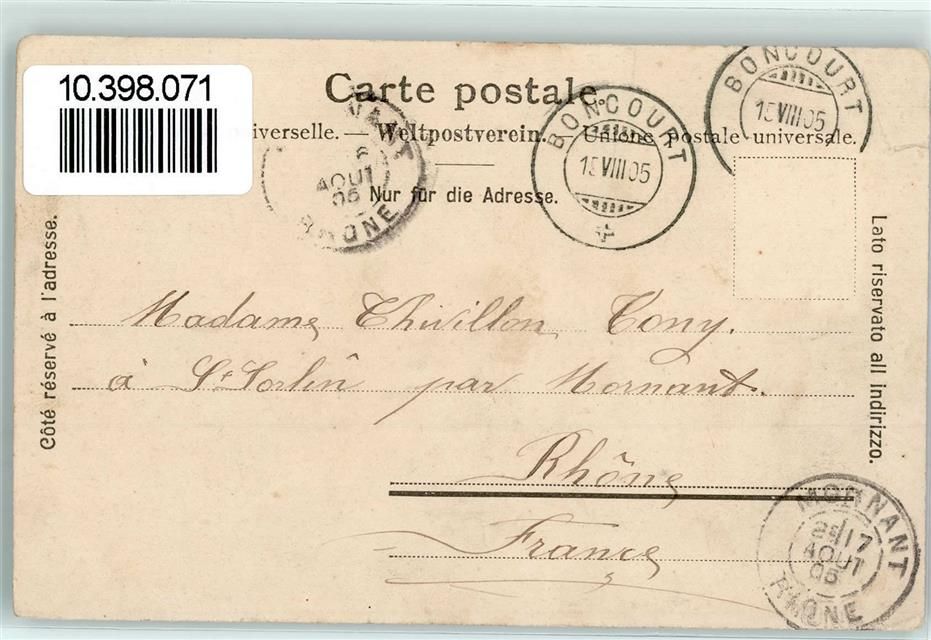 10.398.071
Carte postale
iverselle. — Weltpostverein. — Unione postale universale.
Nur für die Adresse.
NANT
6
AOUT
05
RHONE
BONCOURT
15 VIII 05
BONCOURT
15 VIII 05
Côté réservé à l'adresse.
Lato riservato all indirizzo.
Madame Thivillon Tony.
à St Sorlin par Mornant.
Rhône
France
MORNANT
17
AOUT
05
RHONE